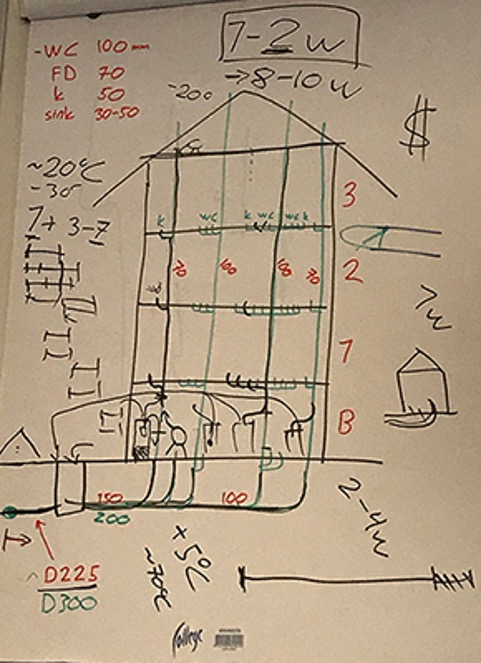 1-2w
→ 8-10w
-WC 100mm
FD 70
k 50
sink 30-50
-200
$
~20°C
-30
1+ 3-7
3
k wc k wc wc k
2
70 100 70
1
>w
B
150 100
200
2-4w
D225
D300
+5°C
~70°C
College